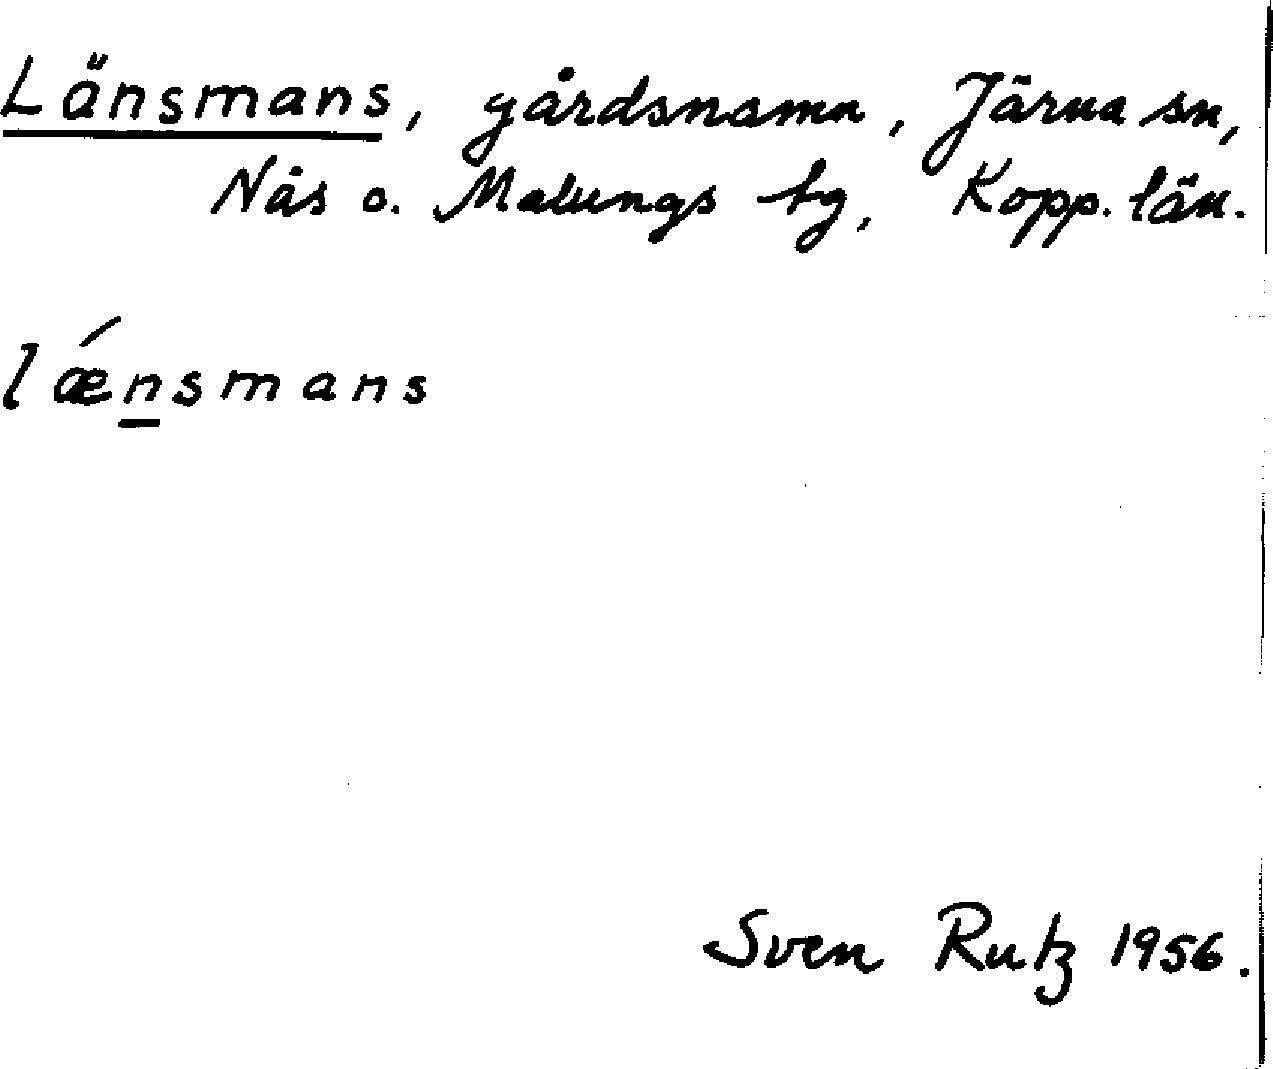 Länsmans, gårdsnamn, Järna sn,
Nås o. Malungs tg, Kopp. län.
lǽnsmans
Sven Rutz 1956.